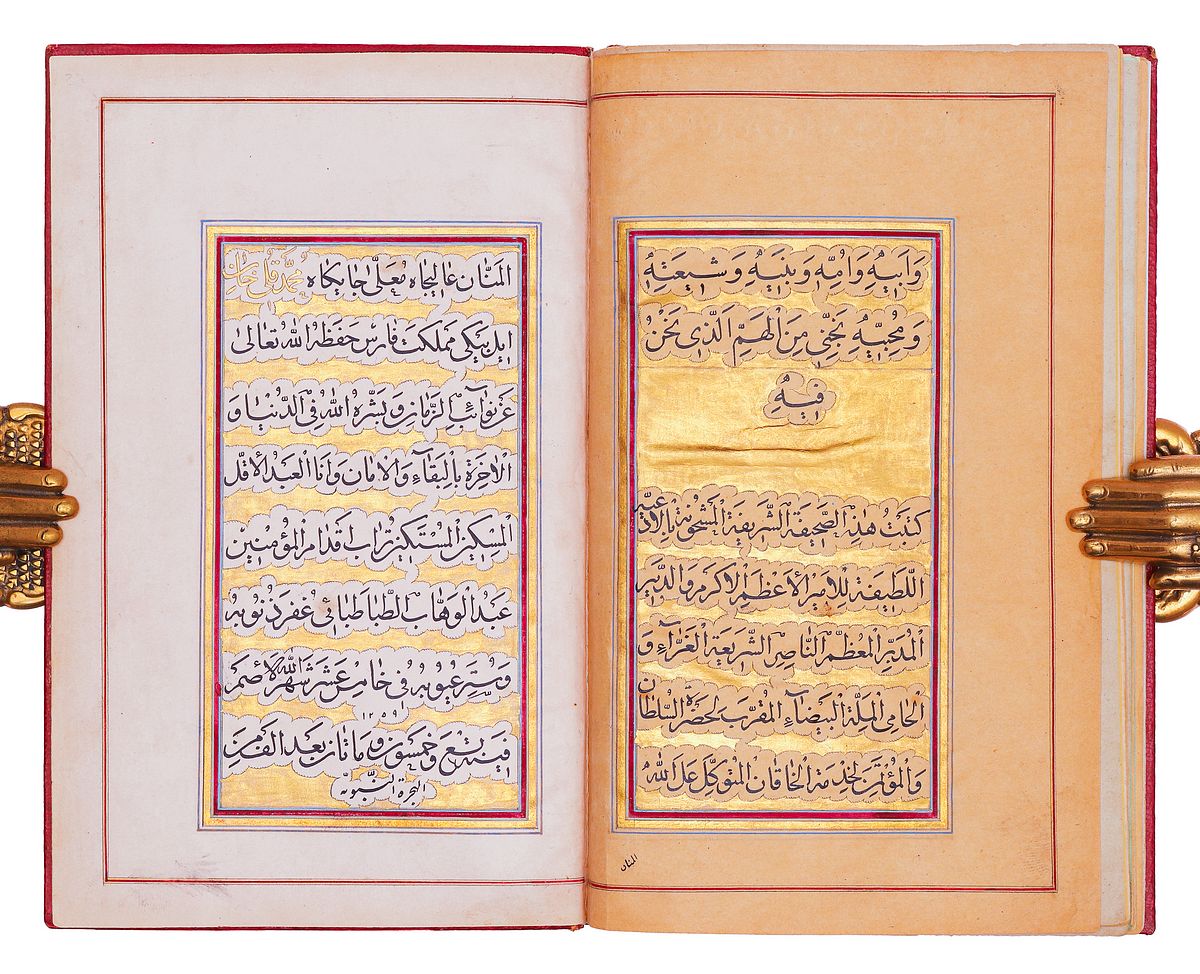 وَاَبيهِ وَاُمِّهِ وَبَنيهِ وَشيعَتِهِ
وَمُحِبّيهِ نَجِّني مِنَ الهَمِّ الَّذي نَحْنُ
فيهِ
كتبتُ هٰذِهِ الصَّحيفَة الشَّريفَة المشْحُونَة بِالادعيه
اللَّطيفَة لِلاَميرِ الاَعْظَمِ الاَكرَمِ وَالدَّبيرِ
المُدَبِّرِ المُعظَّمِ النّاصِرِ الشَّريعَةِ الغَرّاءِ وَ
الحامي المِلَّة البَيْضاءِ المقرّب لِحَضرَةِ السُّلطان
وَالمُؤتَمَن لِخِدْمَةِ الخاقان المتوَكِّل عَلَى اللهِ
المنان
المَنّان عاليجاه مُعلّى جايكاه محمّد قلى خان
ايلبيكى مملكت فارس حَفَظَهُ اللهُ تَعالىٰ
عَن نوائبِ الزَّمانِ وَبَشَّرَهُ اللهُ فِي الدُّنيا وَ
الاٰخِرَةِ بِالبَقاءِ وَالاَمان وَاَنا العَبْد الاَقَلّ
المِسْكين المُسْتَكين تُراب اَقدام المُؤمِنين
عَبْد الوَهّاب الطَّباطَبائي غُفِرَ ذُنُوبه
وَسُتِرَ عُيُوبه في خامِس عَشَر شَهْر الله الاَصَمّ
١٢٥٩
في سَنَة تِسْع وَخَمْسُون وَمِائتان بَعْد الاَلف مِنَ
الهجرة النَّبويّه